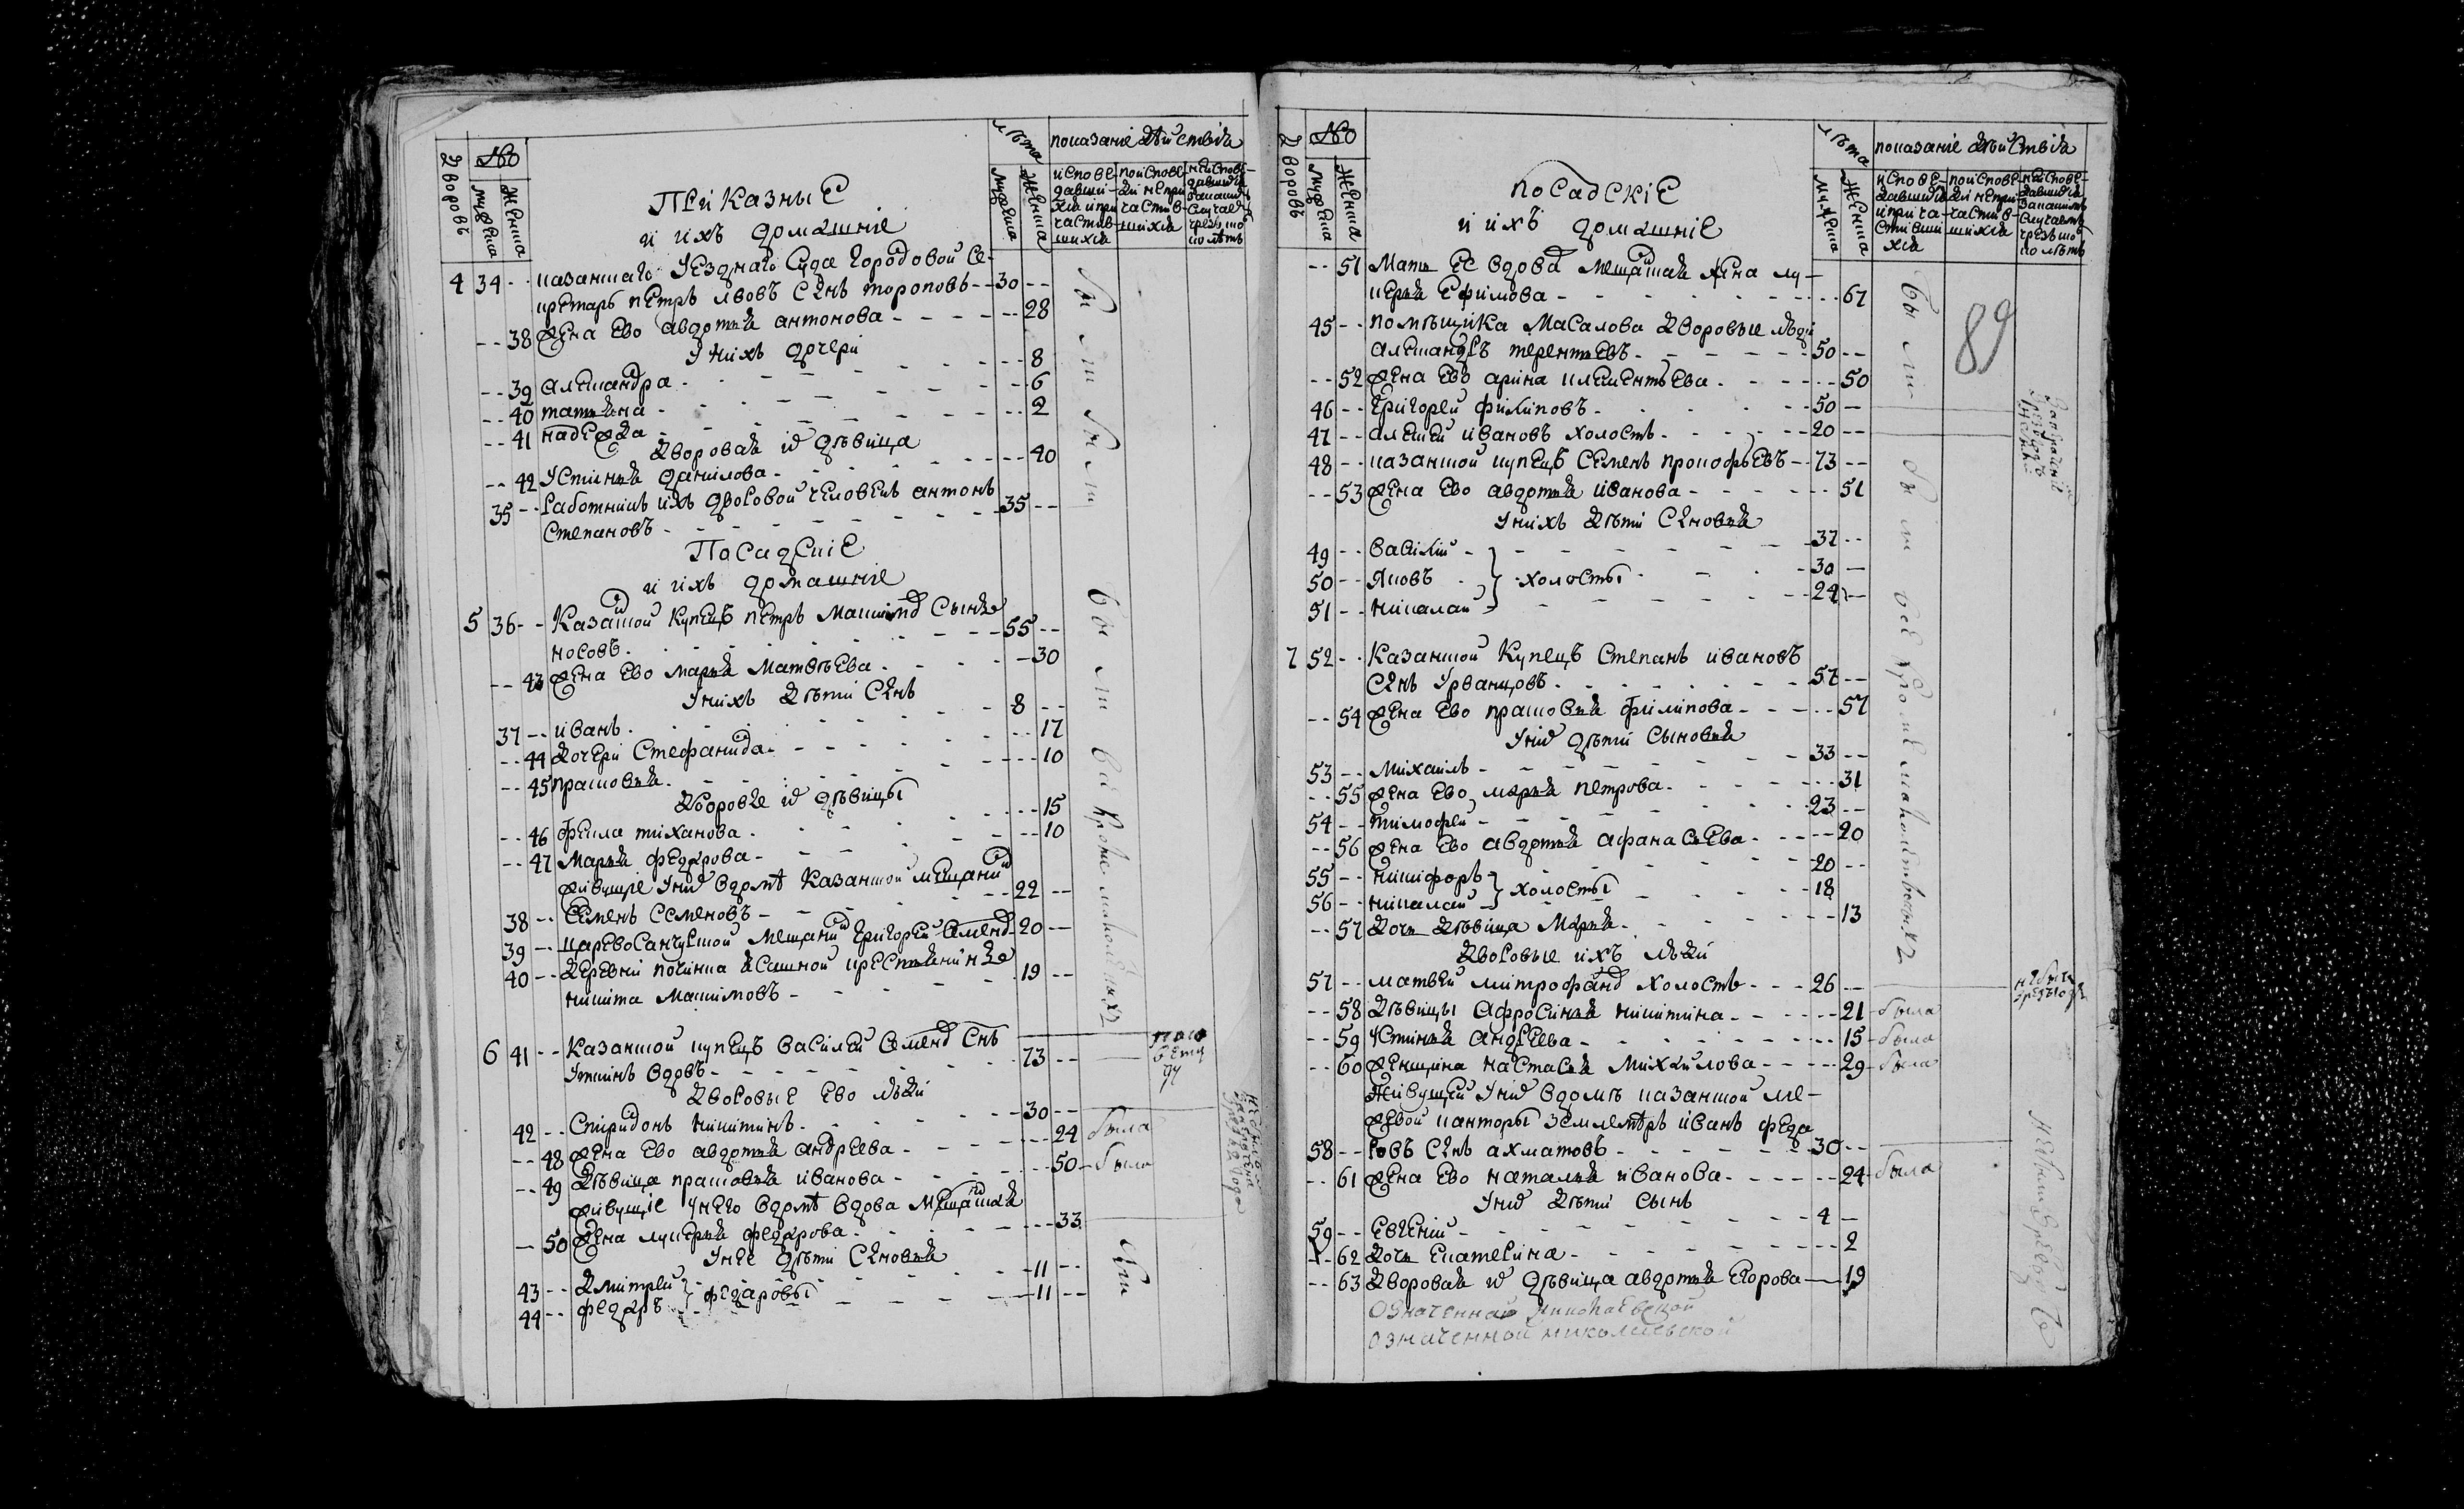 Дворовъ
№
мужеска
женска
Приказные
и ихъ домашніе
лѣта
мужеска
женска
показаніе дѣйствія
исповедавшихся и причастившихся
по исповеди не причастившихся
4 34 -- казанскаго уезднаго суда городовой се-
кретарь петръ львовъ сынъ тороповъ -- 30 --
-- 38 жена ево авдотья антонова -- 28
у нихъ дочери
-- 39 александра -- 8
-- 40 татьяна -- 6
-- 41 надежда -- 2
дворовая их дѣвица
-- 42 Устинья данилова -- 40
35 -- работникъ ихъ дворовой человекъ антонъ
степановъ -- 35 --
были были
Посадскіе
и ихъ домашніе
5 36 -- Казанской купецъ петръ
носовъ -- 55 --
-- 43 жена ево марья матвѣева -- 30
у нихъ дѣти сынъ
37 -- иванъ -- 8 --
-- 44 дочери Стефанида -- 17
-- 45 прасковья -- 10
дворовые их дѣвицы
-- 46 фекла тиханова -- 15
-- 47 Марья федорова -- 10
живущіе у них в доме казанской мещанин
38 -- семенъ семеновъ -- 22 --
39 -- царевосанчурской мещанин григорей семенов 20 --
40 -- деревни починка ясашной
никита максимовъ -- 19 --
были все кроме малолетныхъ
6 41 -- Казанской купецъ василей семенов снъ
вдовъ -- 73 --
дворовые ево люди
42 -- Спиридонъ никитинъ -- 30 --
-- 48 жена ево авдотья андреева -- 24 была
-- 49 дѣвица прасковья иванова -- 50 была
живущіе у него в доме вдова мещанская
-- 50 жена лукерья федорова -- 33
у нее дѣти сыновья
43 -- дмитрей } федоровы -- 11 --
44 -- федоръ -- 11 --
были
Дворовъ
№
мужеска
женска
посадскіе
и ихъ домашніе
лѣта
мужеска
женска
показаніе дѣйствія
89
-- 51 Мать ее вдова мещанская жена лу-
керья ефимова -- 67
45 -- помѣщика Масалова дворовые люди
александръ терентьевъ -- 50 --
-- 52 жена ево арина клементьева -- 50
46 -- григорей филиповъ -- 50 --
47 -- алексей ивановъ холостъ -- 20 --
48 -- казанской купецъ семенъ прокофьевъ -- 73 --
-- 53 жена ево авдотья иванова -- 51
у нихъ дѣти сыновья
49 -- василій -- 37 --
50 -- яковъ } холосты -- 30 --
51 -- николай -- 24 --
7 52 -- Казанской купецъ степанъ ивановъ
сынъ Урванцовъ -- 57 --
-- 54 жена ево прасковья филипова -- 57
у них дѣти сыновья
53 -- михаилъ -- 33 --
-- 55 жена ево марья петрова -- 31
54 -- тимофей -- 23 --
-- 56 жена ево авдотья афанасьева -- 20
55 -- никифоръ } холосты -- 20 --
56 -- николай -- 18
-- 57 дочь дѣвица Марья -- 13
дворовые ихъ люди
57 -- матвей митрофанов холостъ -- 26 --
-- 58 дѣвицы афросинья никитина -- 21 была
-- 59 Устинья андреева -- 15 была
-- 60 женщина настасья михайлова -- 29 была
живущей у них в домѣ казанской ме-
жевой канторы землемѣръ иванъ федо
58 -- ровъ сынъ ахматовъ -- 30 --
-- 61 жена ево наталья иванова -- 24 была
у них дѣти сынъ
59 -- евгений -- 4 --
-- 62 дочь екатерина -- 2
-- 63 дворовая их дѣвица авдотья егорова -- 19
означенной николаевской
означенной николаевской